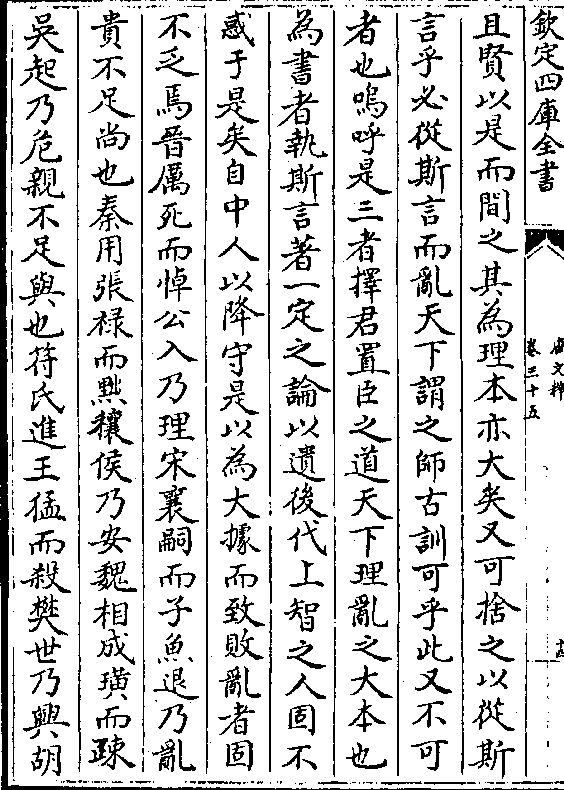 欽定四庫全書
唐文粹
卷三十五
十四
且賢以是而間之其為理本亦大矣又可捨之以從斯
言乎必從斯言而亂天下謂之師古訓可乎此又不可
者也嗚呼是三者擇君置臣之道天下理亂之大本也
為書者執斯言著一定之論以遺後代上智之人固不
惑于是矣自中人以降守是以為大據而致敗亂者固
不乏焉晉厲死而悼公入乃理宋襄嗣而子魚退乃亂
貴不足尚也秦用張祿而黜穰侯乃安魏相成璜而疎
吳起乃危親不足與也苻氏進王猛而殺樊世乃興胡